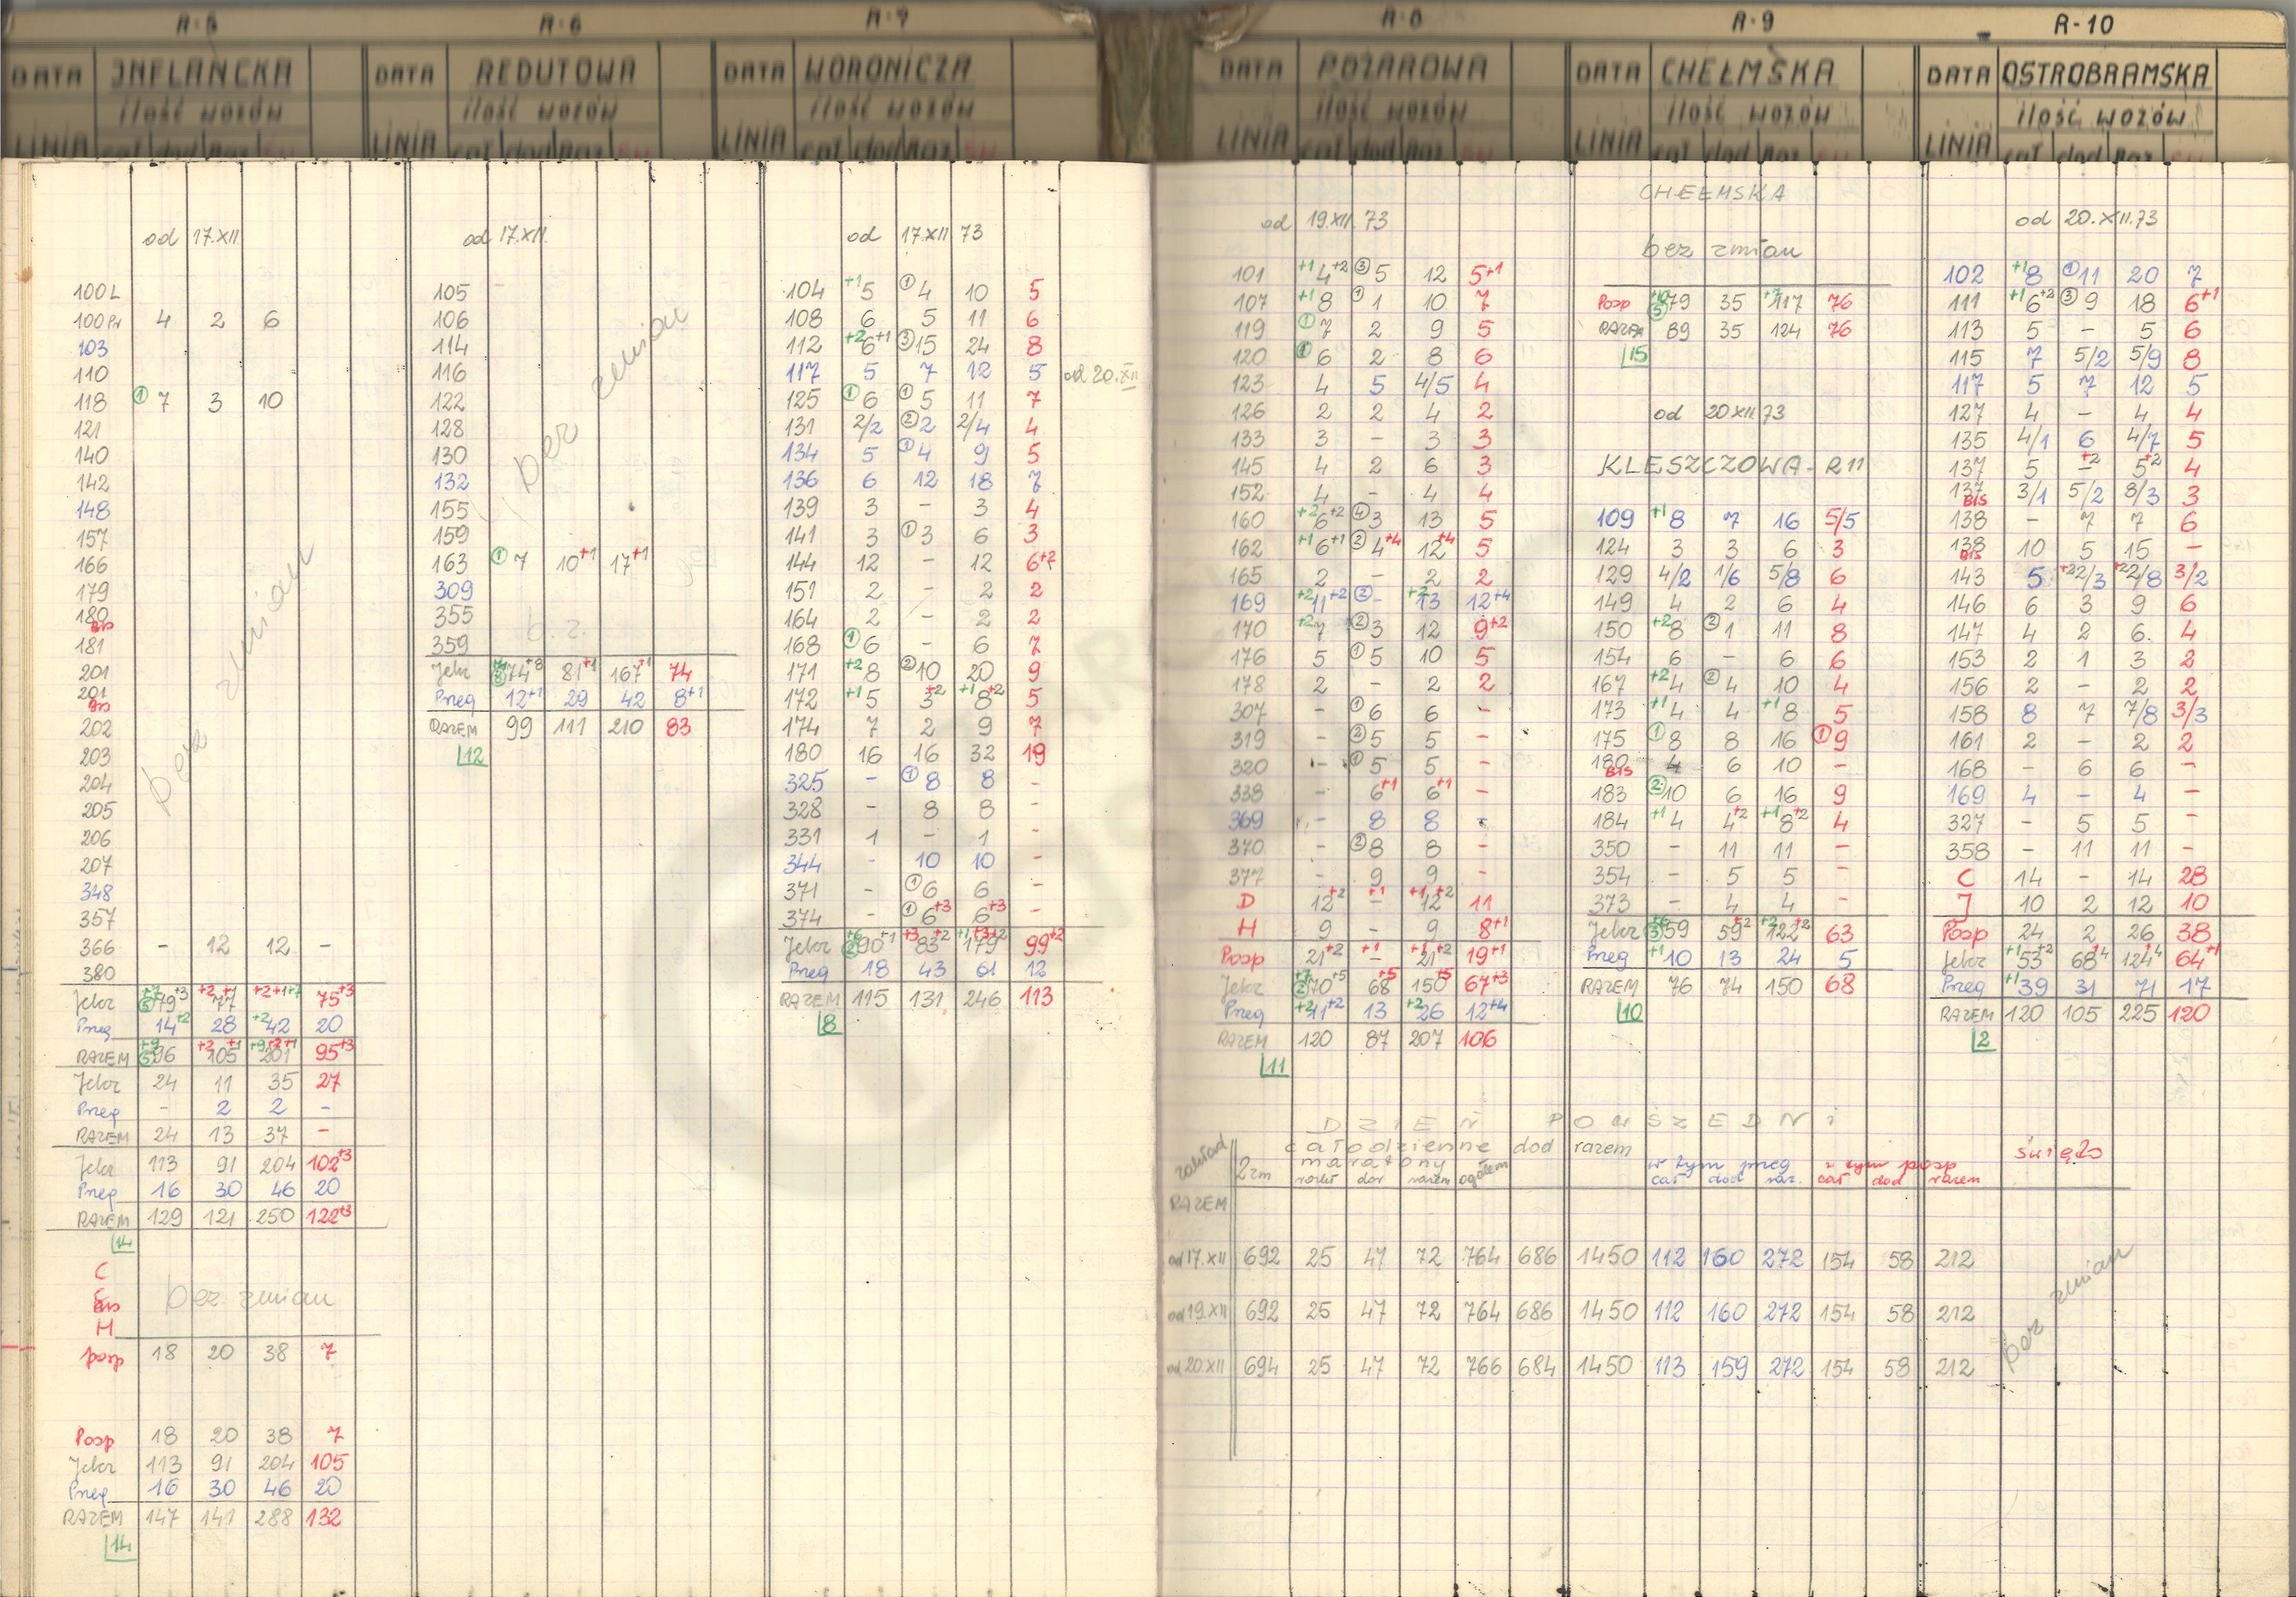 R-5
DATA INFLANCKA
ilość wozów
LINIA cał dod Raz
od 17.XII
100L
100Pr 4 2 6
103
110
118 ① 7 3 10
121
140
142
148
157
166
179
180 BIS
181
201
201 BIS
202
203
204
205
206
207
348
357
366 - 12 12 -
380
bez zmian
Jelcz +7 ⑤ 79+3 +2 77+1 +2+1+7 75+3
Preg 14+2 28 +2 42 20
RAZEM +9 ⑤ 96 +2 105+1 +9+2+1 201 95+3
Jelcz 24 11 35 27
Preg - 2 2 -
RAZEM 24 13 37 -
Jelcz 113 91 204 102+3
Preg 16 30 46 20
RAZEM 129 121 250 122+3
14
C
E BIS
H
bez zmian
posp 18 20 38 7
Posp 18 20 38 7
Jelcz 113 91 204 105
Preg 16 30 46 20
RAZEM 147 141 288 132
14
R-6
DATA REDUTOWA
ilość wozów
LINIA cał dod Raz
od 17.XII.
105
106
114
116
122
128
130
132
155
159
bez zmian
163 ① 7 10+1 17+1
309
355
359
b.z.
Jelcz 74+8 81+1 167+1 74
Preg 12+1 29 42 8+1
RAZEM 99 111 210 83
12
R-7
DATA WORONICZA
ilość wozów
LINIA cał dod Raz
od 17.XII 73
104 +1 5 ① 4 10 5
108 6 5 11 6
112 +2 6+1 ③ 15 24 8
117 5 7 12 5 od 20.XII
125 ① 6 ① 5 11 7
131 2/2 ② 2 2/4 4
134 5 ① 4 9 5
136 6 12 18 7
139 3 - 3 4
141 3 ① 3 6 3
144 12 - 12 6+2
151 2 - 2 2
164 2 - 2 2
168 ① 6 - 6 7
171 +2 8 ② 10 20 9
172 +1 5 3+2 +1 8+2 5
174 7 2 9 7
180 16 16 32 19
325 - ① 8 8 -
328 - 8 8 -
331 1 - 1 -
344 - 10 10 -
371 - ① 6 6 -
374 - ① 6+3 6+3 -
Jelcz +6 ② 90+1 +3 83+2 +1+3+2 179 99+2
Preg 18 43 61 12
RAZEM 115 131 246 113
8
R-8
DATA POŻAROWA
ilość wozów
LINIA cał dod Raz
od 19.XII 73
101 +1 4+2 ③ 5 12 5+1
107 +1 8 ① 1 10 7
119 ① 7 2 9 5
120 ① 6 2 8 6
123 4 5 4/5 4
126 2 2 4 2
133 3 - 3 3
145 4 2 6 3
152 4 - 4 4
160 +2 6+2 ④ 3 13 5
162 +1 6+1 ② 4+4 12+4 5
165 2 - 2 2
169 +2 11+2 ② - +2 13 12+4
170 +2 7 ② 3 12 9+2
176 5 ① 5 10 5
178 2 - 2 2
307 - ① 6 6 -
319 - ② 5 5 -
320 - ① 5 5 -
338 - 6+1 6+1 -
369 - 8 8 -
370 - ② 8 8 -
377 - 9 9 -
D 12+2 -+1 +1 12+2 11
H 9 - 9 8+1
Posp 21+2 -+1 +1 21+2 19+1
Jelcz +7 ② 70+5 68+5 150+5 67+3
Preg +2 11+2 13 +2 26 12+4
RAZEM 120 87 207 106
11
R-9
DATA CHEŁMSKA
ilość wozów
LINIA cał dod Raz
CHEŁMSKA
bez zmian
Posp +10 ⑤ 79 35 +7 117 76
RAZEM 89 35 124 76
15
od 20 XII 73
KLESZCZOWA - R11
109 +1 8 7 16 5/5
124 3 3 6 3
129 4/2 1/6 5/8 6
149 4 2 6 4
150 +2 8 ② 1 11 8
154 6 - 6 6
167 +2 4 ② 4 10 4
173 +1 4 4 +1 8 5
175 ① 8 8 16 ① 9
180 BIS 4 6 10 -
183 ② 10 6 16 9
184 +1 4 4+2 +1 8+2 4
350 - 11 11 -
354 - 5 5 -
373 - 4 4 -
Jelcz +6 ③ 59 59+2 +2 122+2 63
Preg +1 10 13 24 5
RAZEM 76 74 150 68
10
R-10
DATA OSTROBRAMSKA
ilość wozów
LINIA cał dod Raz
od 20.XII.73
102 +1 8 ① 11 20 7
111 +1 6+2 ③ 9 18 6+1
113 5 - 5 6
115 7 5/2 5/9 8
117 5 7 12 5
127 4 - 4 4
135 4/1 6 4/7 5
137 5 -+2 5+2 4
137 BIS 3/1 5/2 8/3 3
138 - 7 7 6
138 BIS 10 5 15 -
143 5 +2 2/3 +2 2/8 3/2
146 6 3 9 6
147 4 2 6. 4
153 2 1 3 2
156 2 - 2 2
158 8 7 7/8 3/3
161 2 - 2 2
168 - 6 6 -
169 4 - 4 -
327 - 5 5 -
358 - 11 11 -
C 14 - 14 28
J 10 2 12 10
Posp 24 2 26 38
Jelcz +1 53+2 68+4 124+4 64+1
Preg +1 39 31 71 17
RAZEM 120 105 225 120
2
DZIEŃ POWSZEDNI
zakład całodzienne dod razem święto
2zm maratony ogółem w tym preg w tym posp
rozkł dor razem cał dod raz. cał dod razem
RAZEM
od 17.XII 692 25 47 72 764 686 1450 112 160 272 154 58 212
od 19.XII 692 25 47 72 764 686 1450 112 160 272 154 58 212
od 20.XII 694 25 47 72 766 684 1450 113 159 272 154 58 212
bez zmian